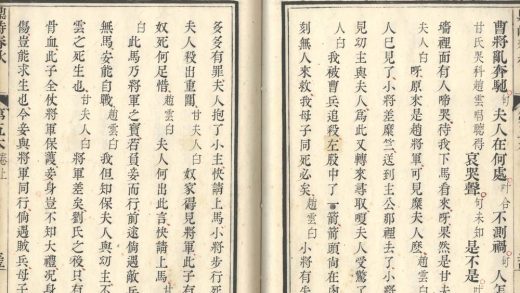 曹將亂奔馳句夫人在何處句合不測禍句人怎
甘氏哭科趙雲唱聽得哀哭聲句未知是不是
墻裡面有人啼哭待我下馬看來呀果然是甘夫
夫人白呀原來是趙將軍可見糜夫人麼趙雲白
人已見了小將差糜竺送到主公那裡去了小
見幼主與夫人爲此又轉來尋取嗄夫人受驚了
人白我被曹兵追殺左股中了一箭箭頭尚在肉
刻無人來救我母子同死必矣趙雲白小將有失
多多有罪夫人抱了小主快請上馬小將步行死
夫人殺出重圍甘夫人白奴家得見將軍此子有
奴死何足惜趙雲白夫人何出此言快請上馬
白此馬乃將軍之寶若負妾而行前途倘遇敵兵
無馬安能自戰趙雲白我但知保夫人與幼主不
雲之死生也甘夫人白將軍差矣劉氏之後只有
骨血此子全仗將軍保護妾身豈不知大禮況身
傷豈能求生也今妾與將軍同行倘遇賊兵母子
鼎峙春秋 第五本卷上